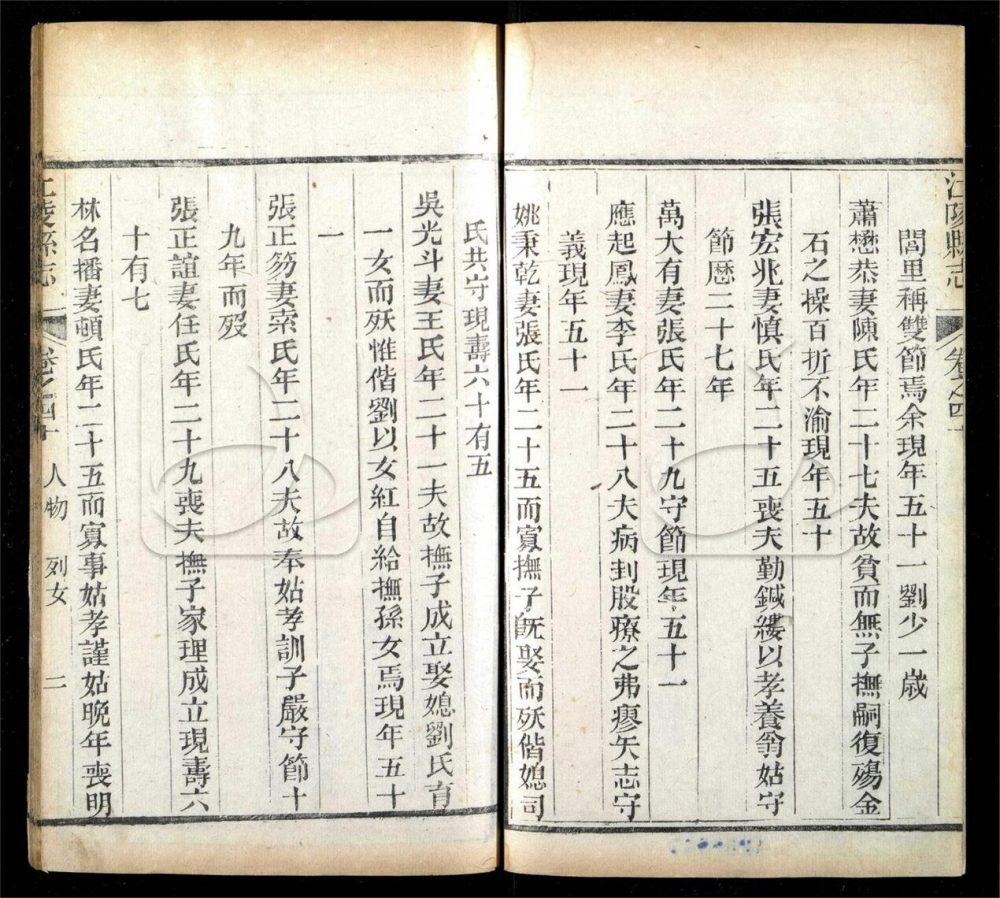 江陵縣志
卷之四十
閭里稱雙節焉余現年五十一劉少一歲
蕭懋恭妻陳氏年二十七夫故貧而無子撫嗣復殤金
石之操百折不渝現年五十
張宏兆妻慎氏年二十五喪夫勤鍼縷以孝養翁姑守
節歷二十七年
萬大有妻張氏年二十九守節現年五十一
應起鳳妻李氏年二十八夫病刲股療之弗瘳矢志守
義現年五十一
姚秉乾妻張氏年二十五而寡撫子旣娶而殀偕媳司
氏共守現壽六十有五
吳光斗妻王氏年二十一夫故撫子成立娶媳劉氏育
一女而殀惟偕劉以女紅自給撫孫女焉現年五十
一
張正笏妻索氏年二十八夫故奉姑孝訓子嚴守節十
九年而歿
張正誼妻任氏年二十九喪夫撫子家理成立現壽六
十有七
林名播妻頓氏年二十五而寡事姑孝謹姑晚年喪明
江陵縣志
卷之四十
人物 列女
二